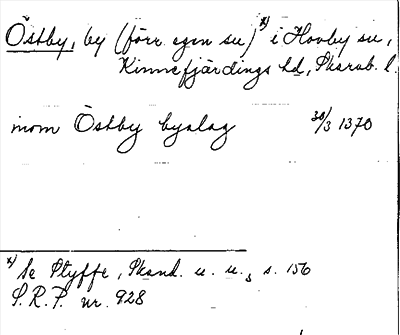 Östby, by (förr egen su) x) i Hovby su,
Kinnefjärdings hd, Skarab. l.
inom Östby byalag 30/3 1370
x) Se Styffe, Skand. u. u., s. 156
S.R.P. nr. 928